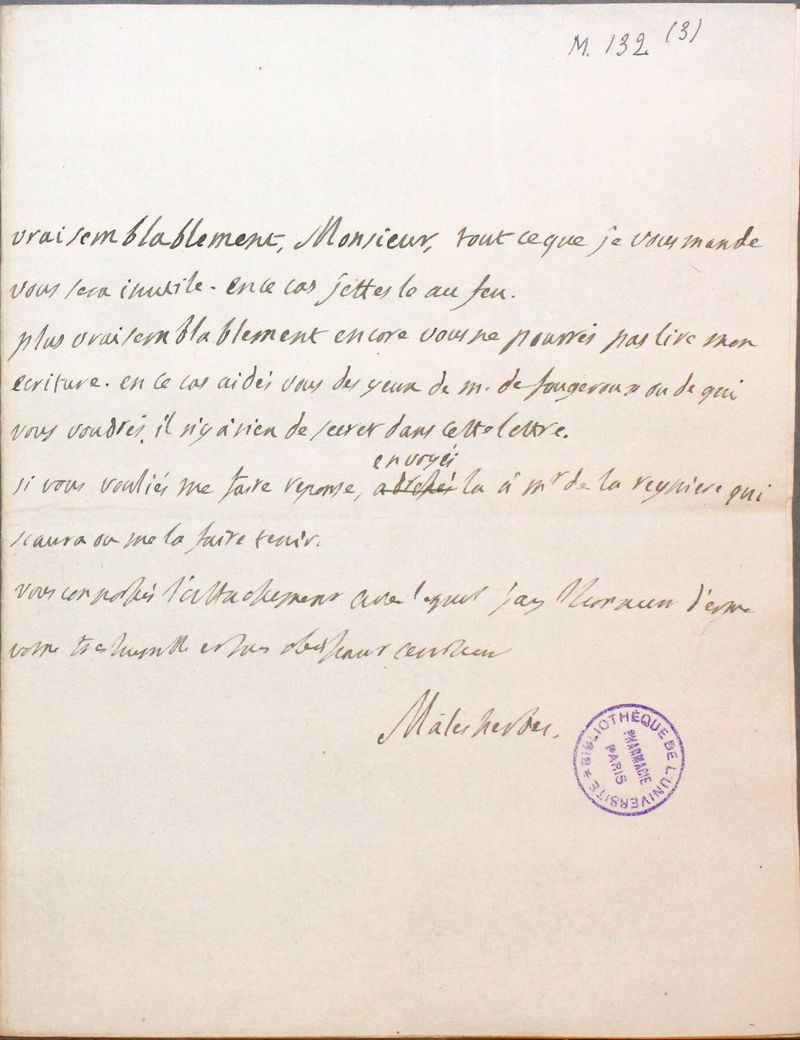 M. 132 (3)
vraisemblablement, Monsieur, tout ce que je vous mande
vous sera inutile. en ce cas jettes le au feu.
plus vraisemblablement encore vous ne pourrés pas lire mon
ecriture. en ce cas aidés vous des yeux de m. de fougeroux ou de qui
vous voudrés. il n'y a rien de secret dans cette lettre.
envoyés
si vous vouliés me faire reponse, adressés la a mr de la reyniere qui
scaura ou me la faire tenir.
vous connoissés l'attachement avec lequel j'ay l'honneur d'etre
votre tres humble et tres obeissant serviteur
Malesherbes.
BIBLIOTHÈQUE DE L'UNIVERSITÉ
PHARMACIE
PARIS